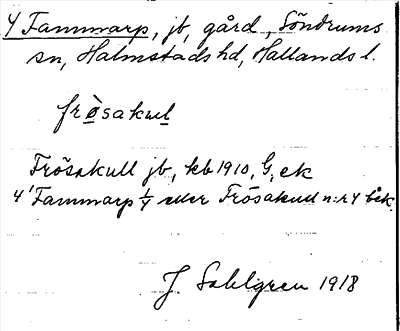 4 Fammarp, jb, gård, Söndrums
sn, Halmstads hd, Hallands l.
frösakul
Frösakull jb, kb 1910, G, ek
4 'Fammarp 1/4 eller Frösakull n:r 4 bek.
J. Sahlgren 1918